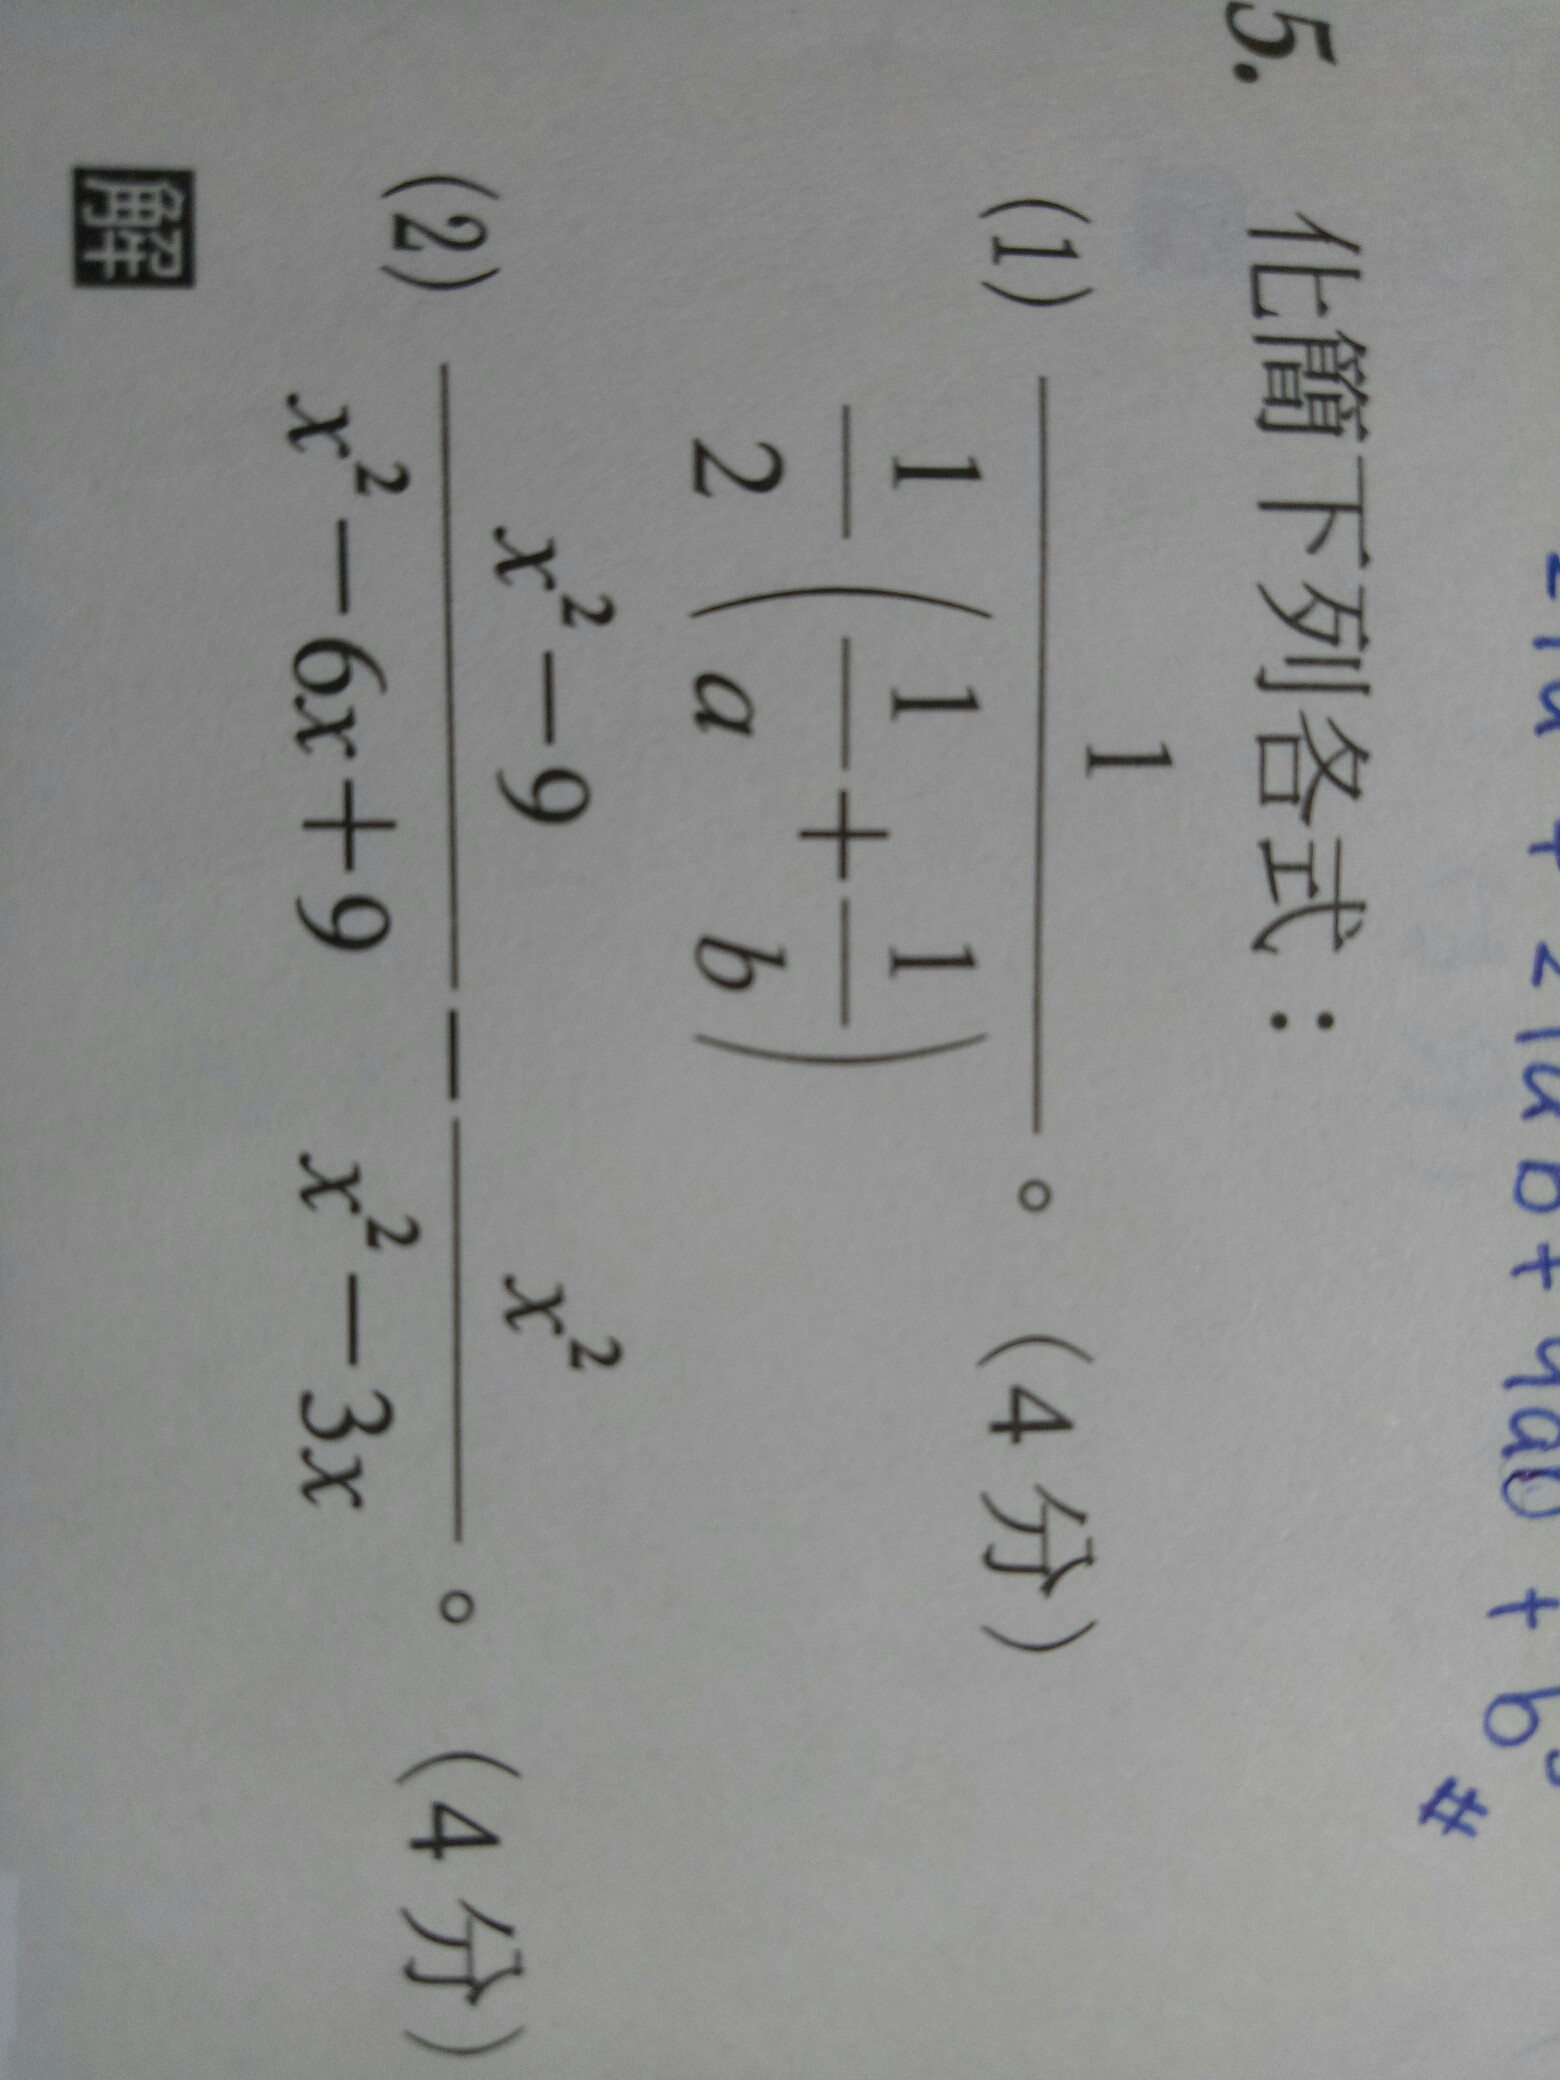 5. 化簡下列各式：
(1) \frac{1}{\frac{1}{2}(\frac{1}{a}+\frac{1}{b})}。(4 分)
(2) \frac{x²-9}{x²-6x+9}-\frac{x²}{x²-3x}。(4 分)
解